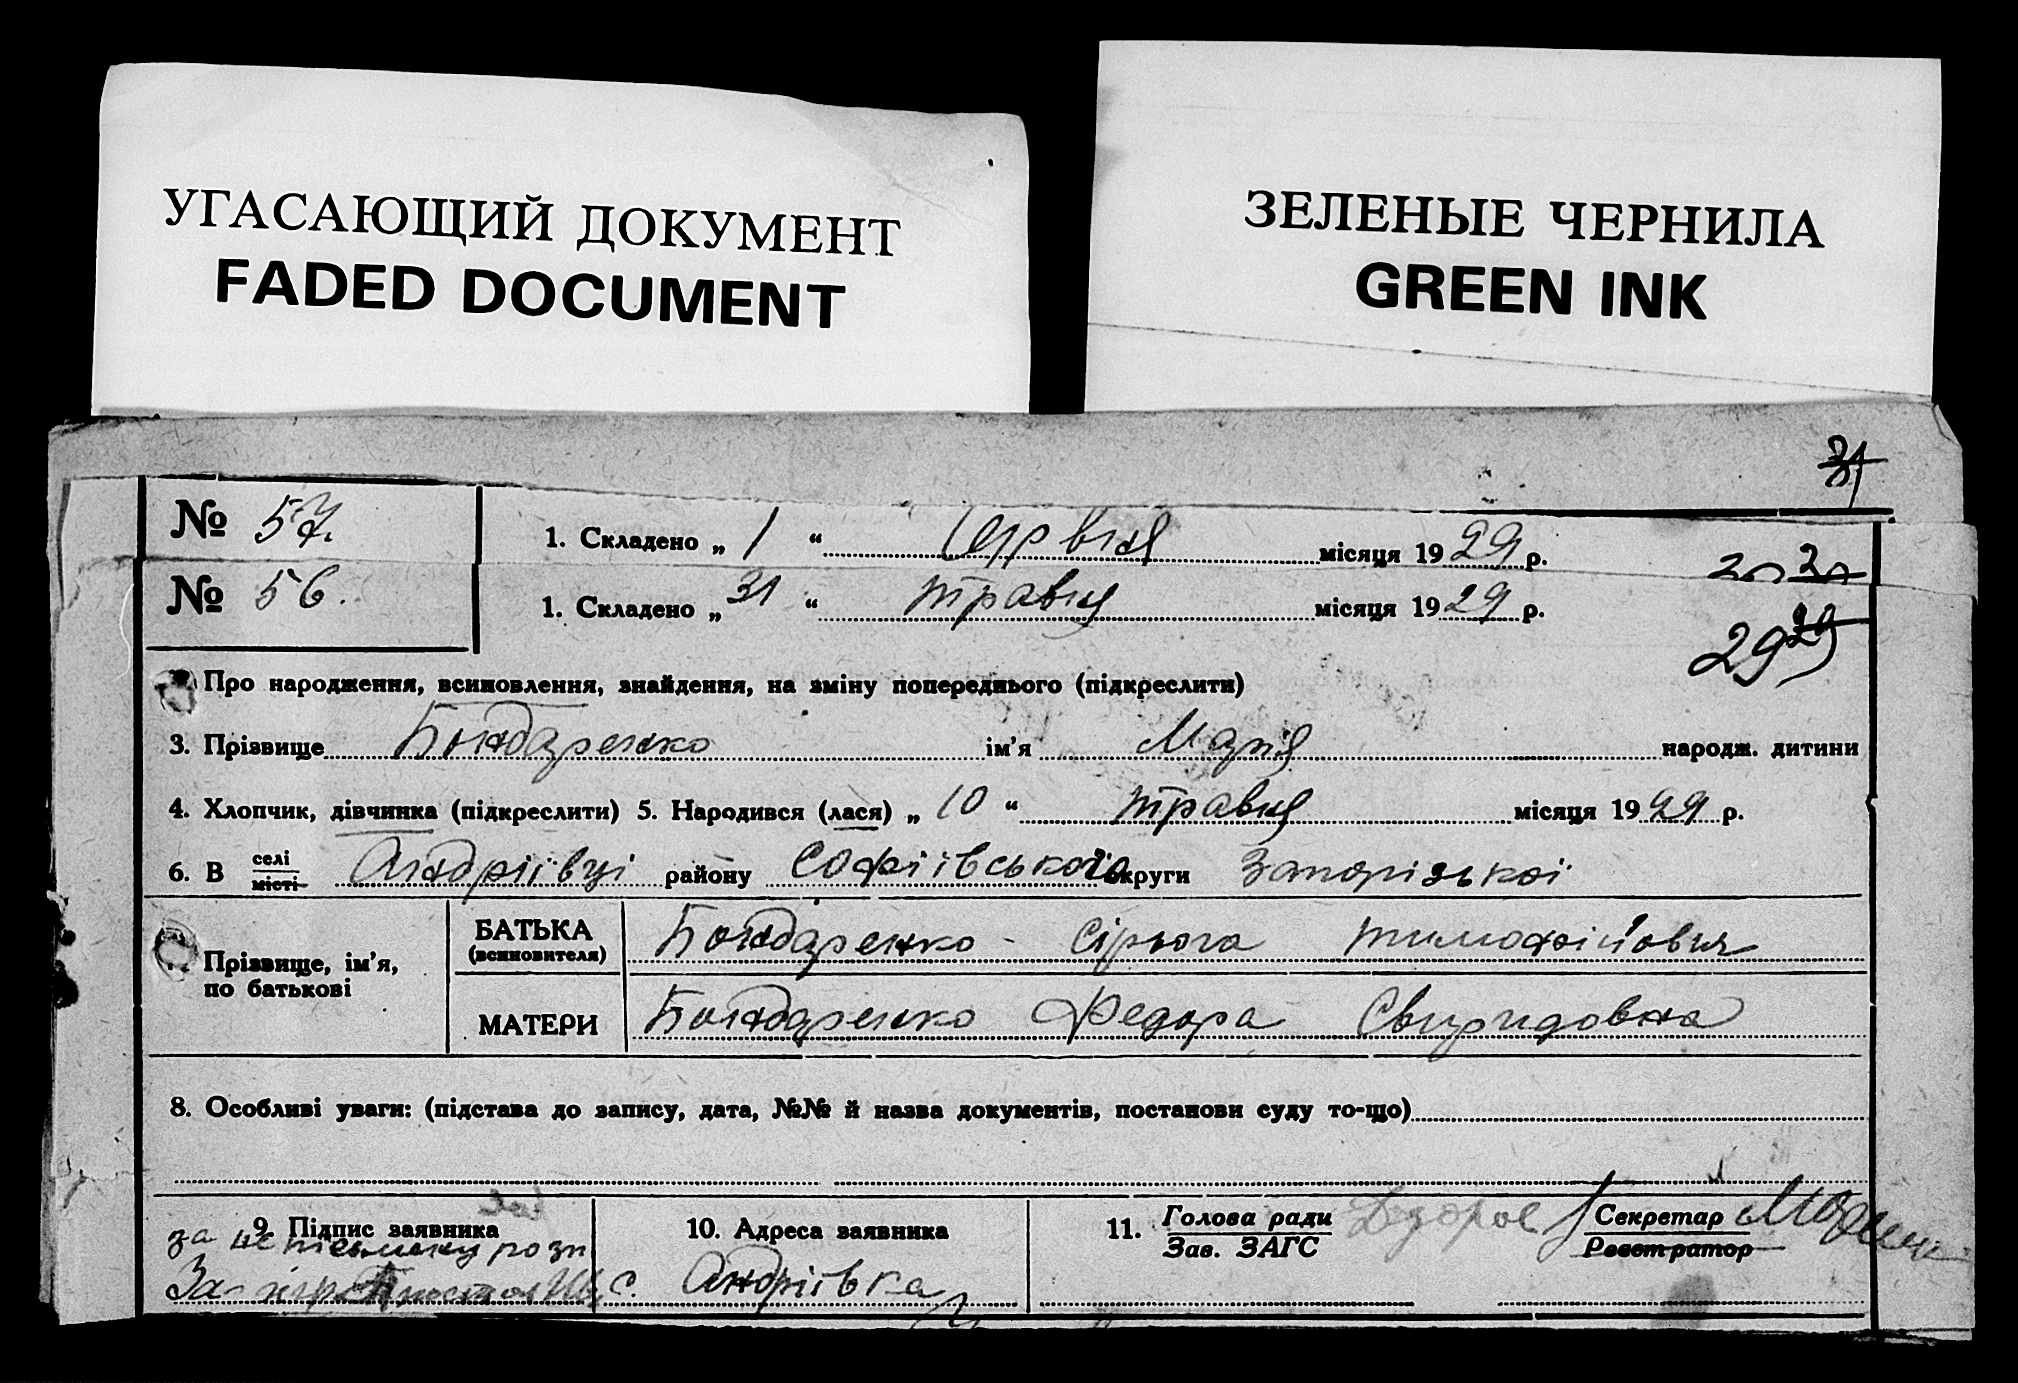 УГАСАЮЩИЙ ДОКУМЕНТ
FADED DOCUMENT
ЗЕЛЕНЫЕ ЧЕРНИЛА
GREEN INK
31
№ 57. 1. Складено „ 1 “ Червня місяця 1929 р.
№ 56. 1. Складено „ 31 “ травня місяця 1929 р.
29 29
Про народження, всиновлення, знайдення, на зміну попереднього (підкреслити)
3. Прізвище Бондаренко ім'я Марія народж. дитини
4. Хлопчик, дівчинка (підкреслити) 5. Народився (лася) „ 10 “ травня місяця 1929 р.
6. В селі місті Андріївці району Софіївського округи Запорізької
Прізвище, ім'я, по батькові
БАТЬКА (всиновителя) Бондаренко Сірьога тимофійович
МАТЕРИ Бондаренко Федора Свиридовна
8. Особливі уваги: (підстава до запису, дата, №№ й назва документів, постанови суду то-що)
9. Підпис заявника 10. Адреса заявника 11. Голова ради Зав. ЗАГС Секретар Реєстратор
за розп
За
с. Андріївка